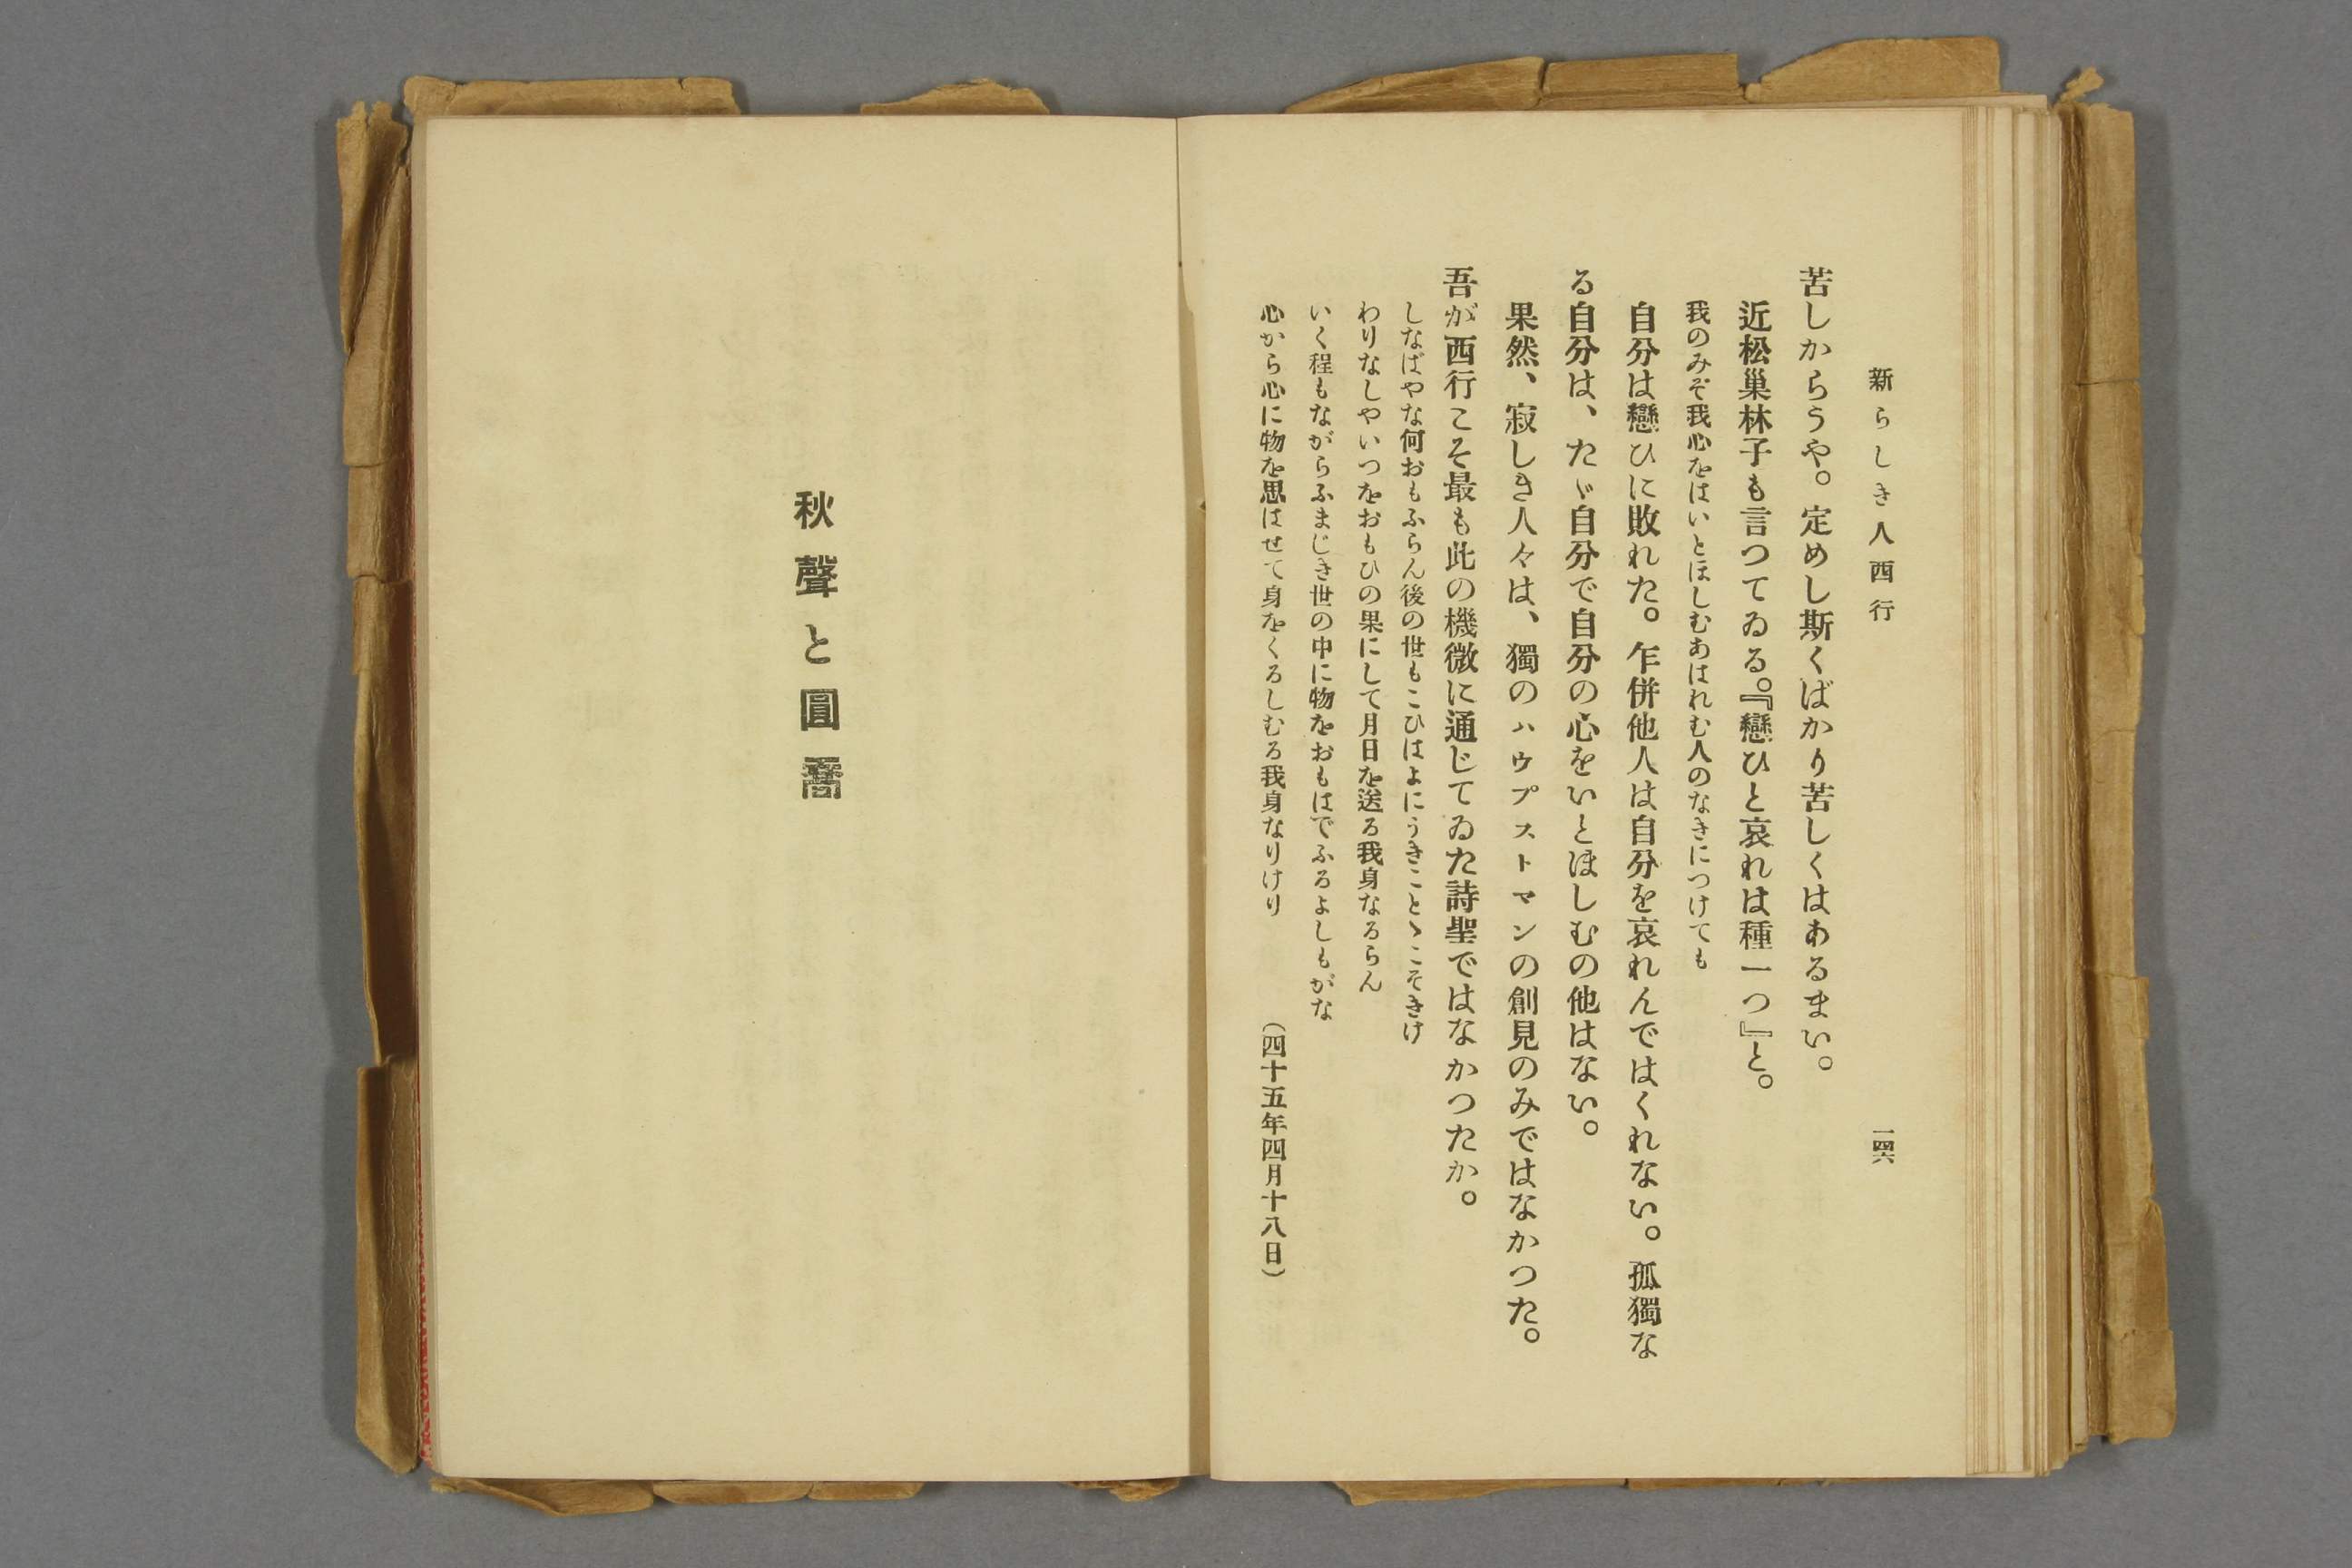 新らしき人西行
一四六
苦しからうや。定めし斯くばかり苦しくはあるまい。
近松巢林子も言つてゐる。『戀ひと哀れは種一つ』と。
我のみぞ我心をはいとほしむあはれむ人のなきにつけても
自分は戀ひに敗れた。乍併他人は自分を哀れんではくれない。孤獨な
る自分は、たゞ自分で自分の心をいとほしむの他はない。
果然、寂しき人々は、獨のハウプストマンの創見のみではなかつた。
吾が西行こそ最も此の機微に通じてゐた詩聖ではなかつたか。
しなばやな何おもふらん後の世もこひはよにうきことゝこそきけ
わりなしやいつをおもひの果にして月日を送る我身なるらん
いく程もながらふまじき世の中に物をおもはでふるよしもがな
心から心に物を思はせて身をくるしむる我身なりけり
(四十五年四月十八日)
秋聲と圓喬